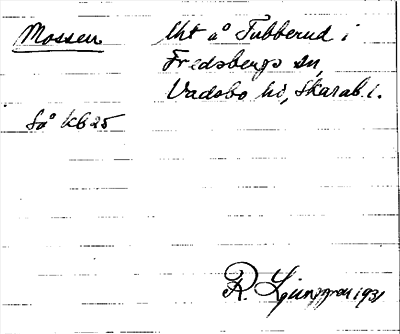 Mossen
Uht å Tubberud i
Fredsbergs sn,
Vadsbo hd, Skarab. l.
Så kb 25
R. Ljunggren 1931